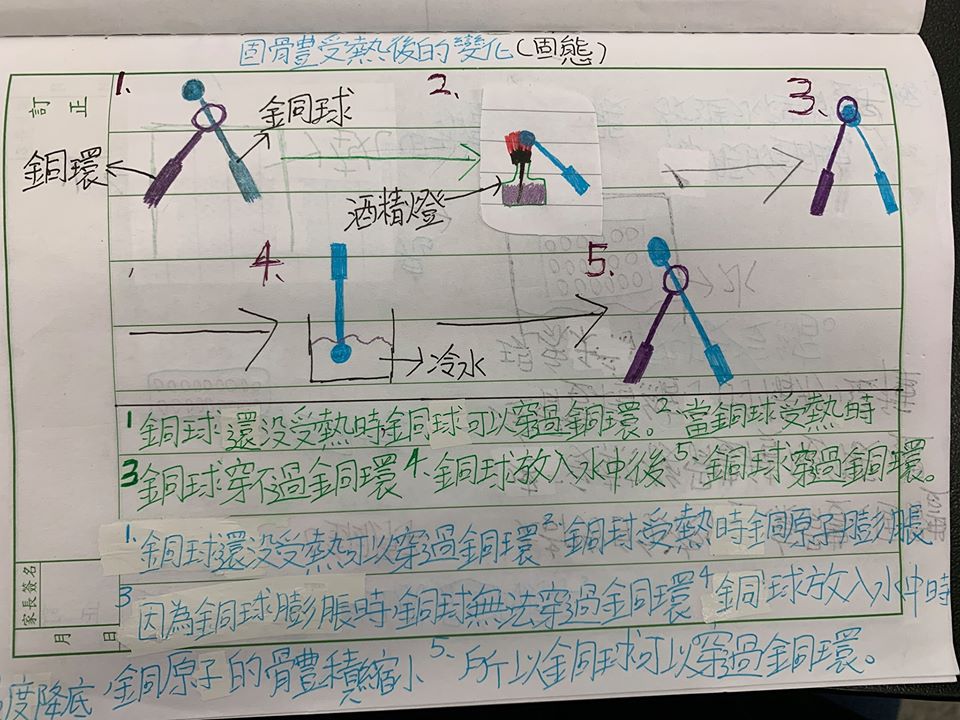 固體受熱後的變化(固態)
訂正
1.
銅球
銅環
2.
酒精燈
3.
4.
冷水
5.
1 銅球還没受熱時銅球可以穿過銅環。2.當銅球受熱時
3 銅球穿不過銅環 4、銅球放入水中後 5、銅球穿過銅環。
1. 銅球還没受熱可以穿過銅環 2. 銅球受熱時銅原子膨脹
3 因為銅球膨脹時,銅球無法穿過銅環 4 銅球放入水中時
度降底,銅原子的體積縮小 5、所以銅球可以穿過銅環。
家長簽名
月 日